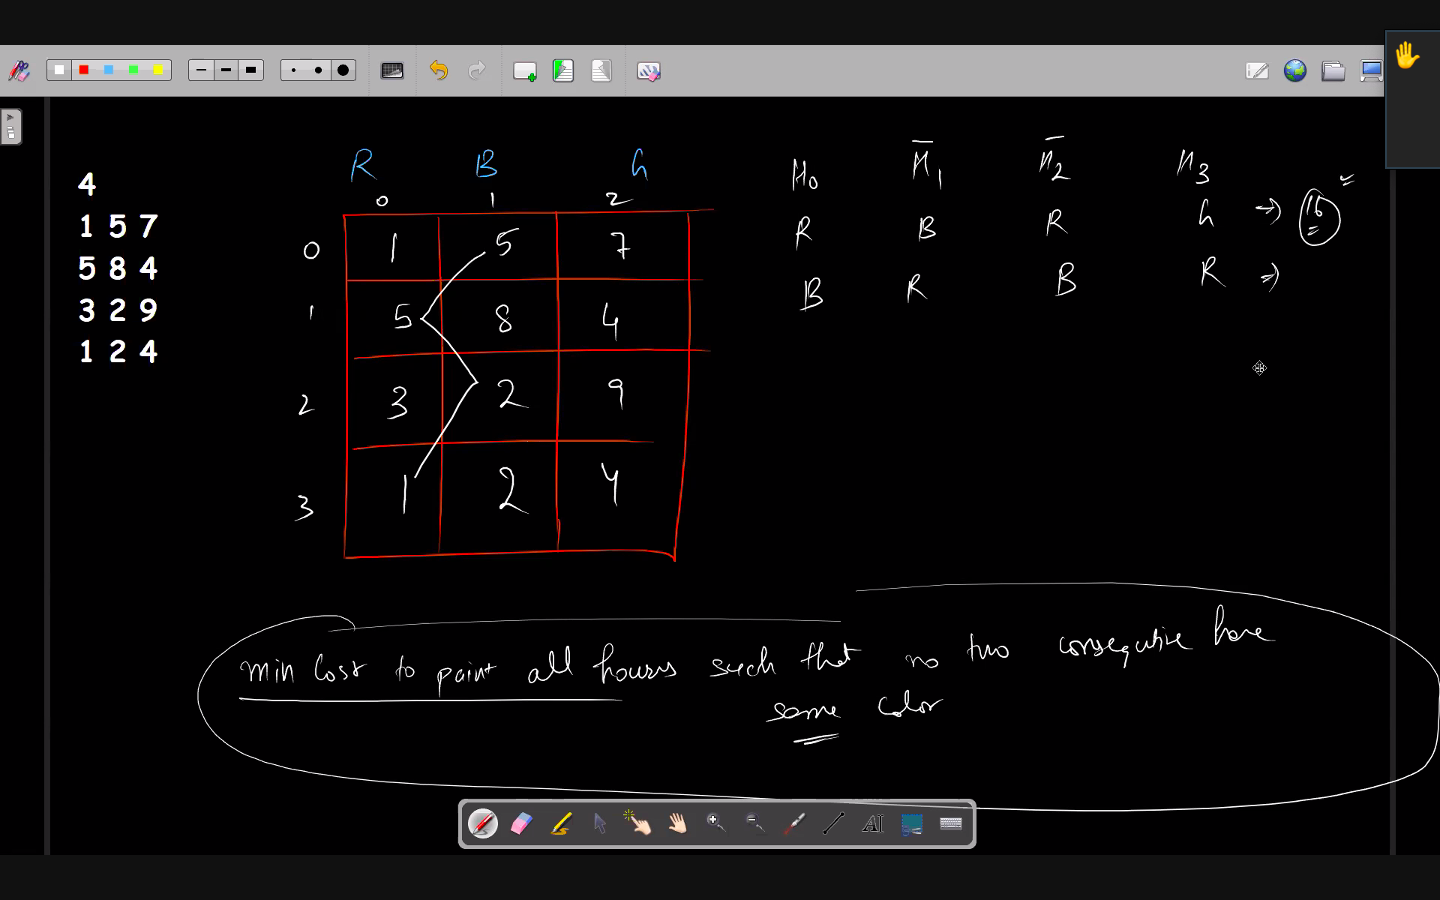 4
1 5 7
5 8 4
3 2 9
1 2 4
R B G
0 1 2
0 1 5 7
1 5 8 4
2 3 2 9
3 1 2 4
H0 H1 H2 H3
R B R G => 16
B R B R =>
min cost to paint all houses such that no two consequtive have
same color